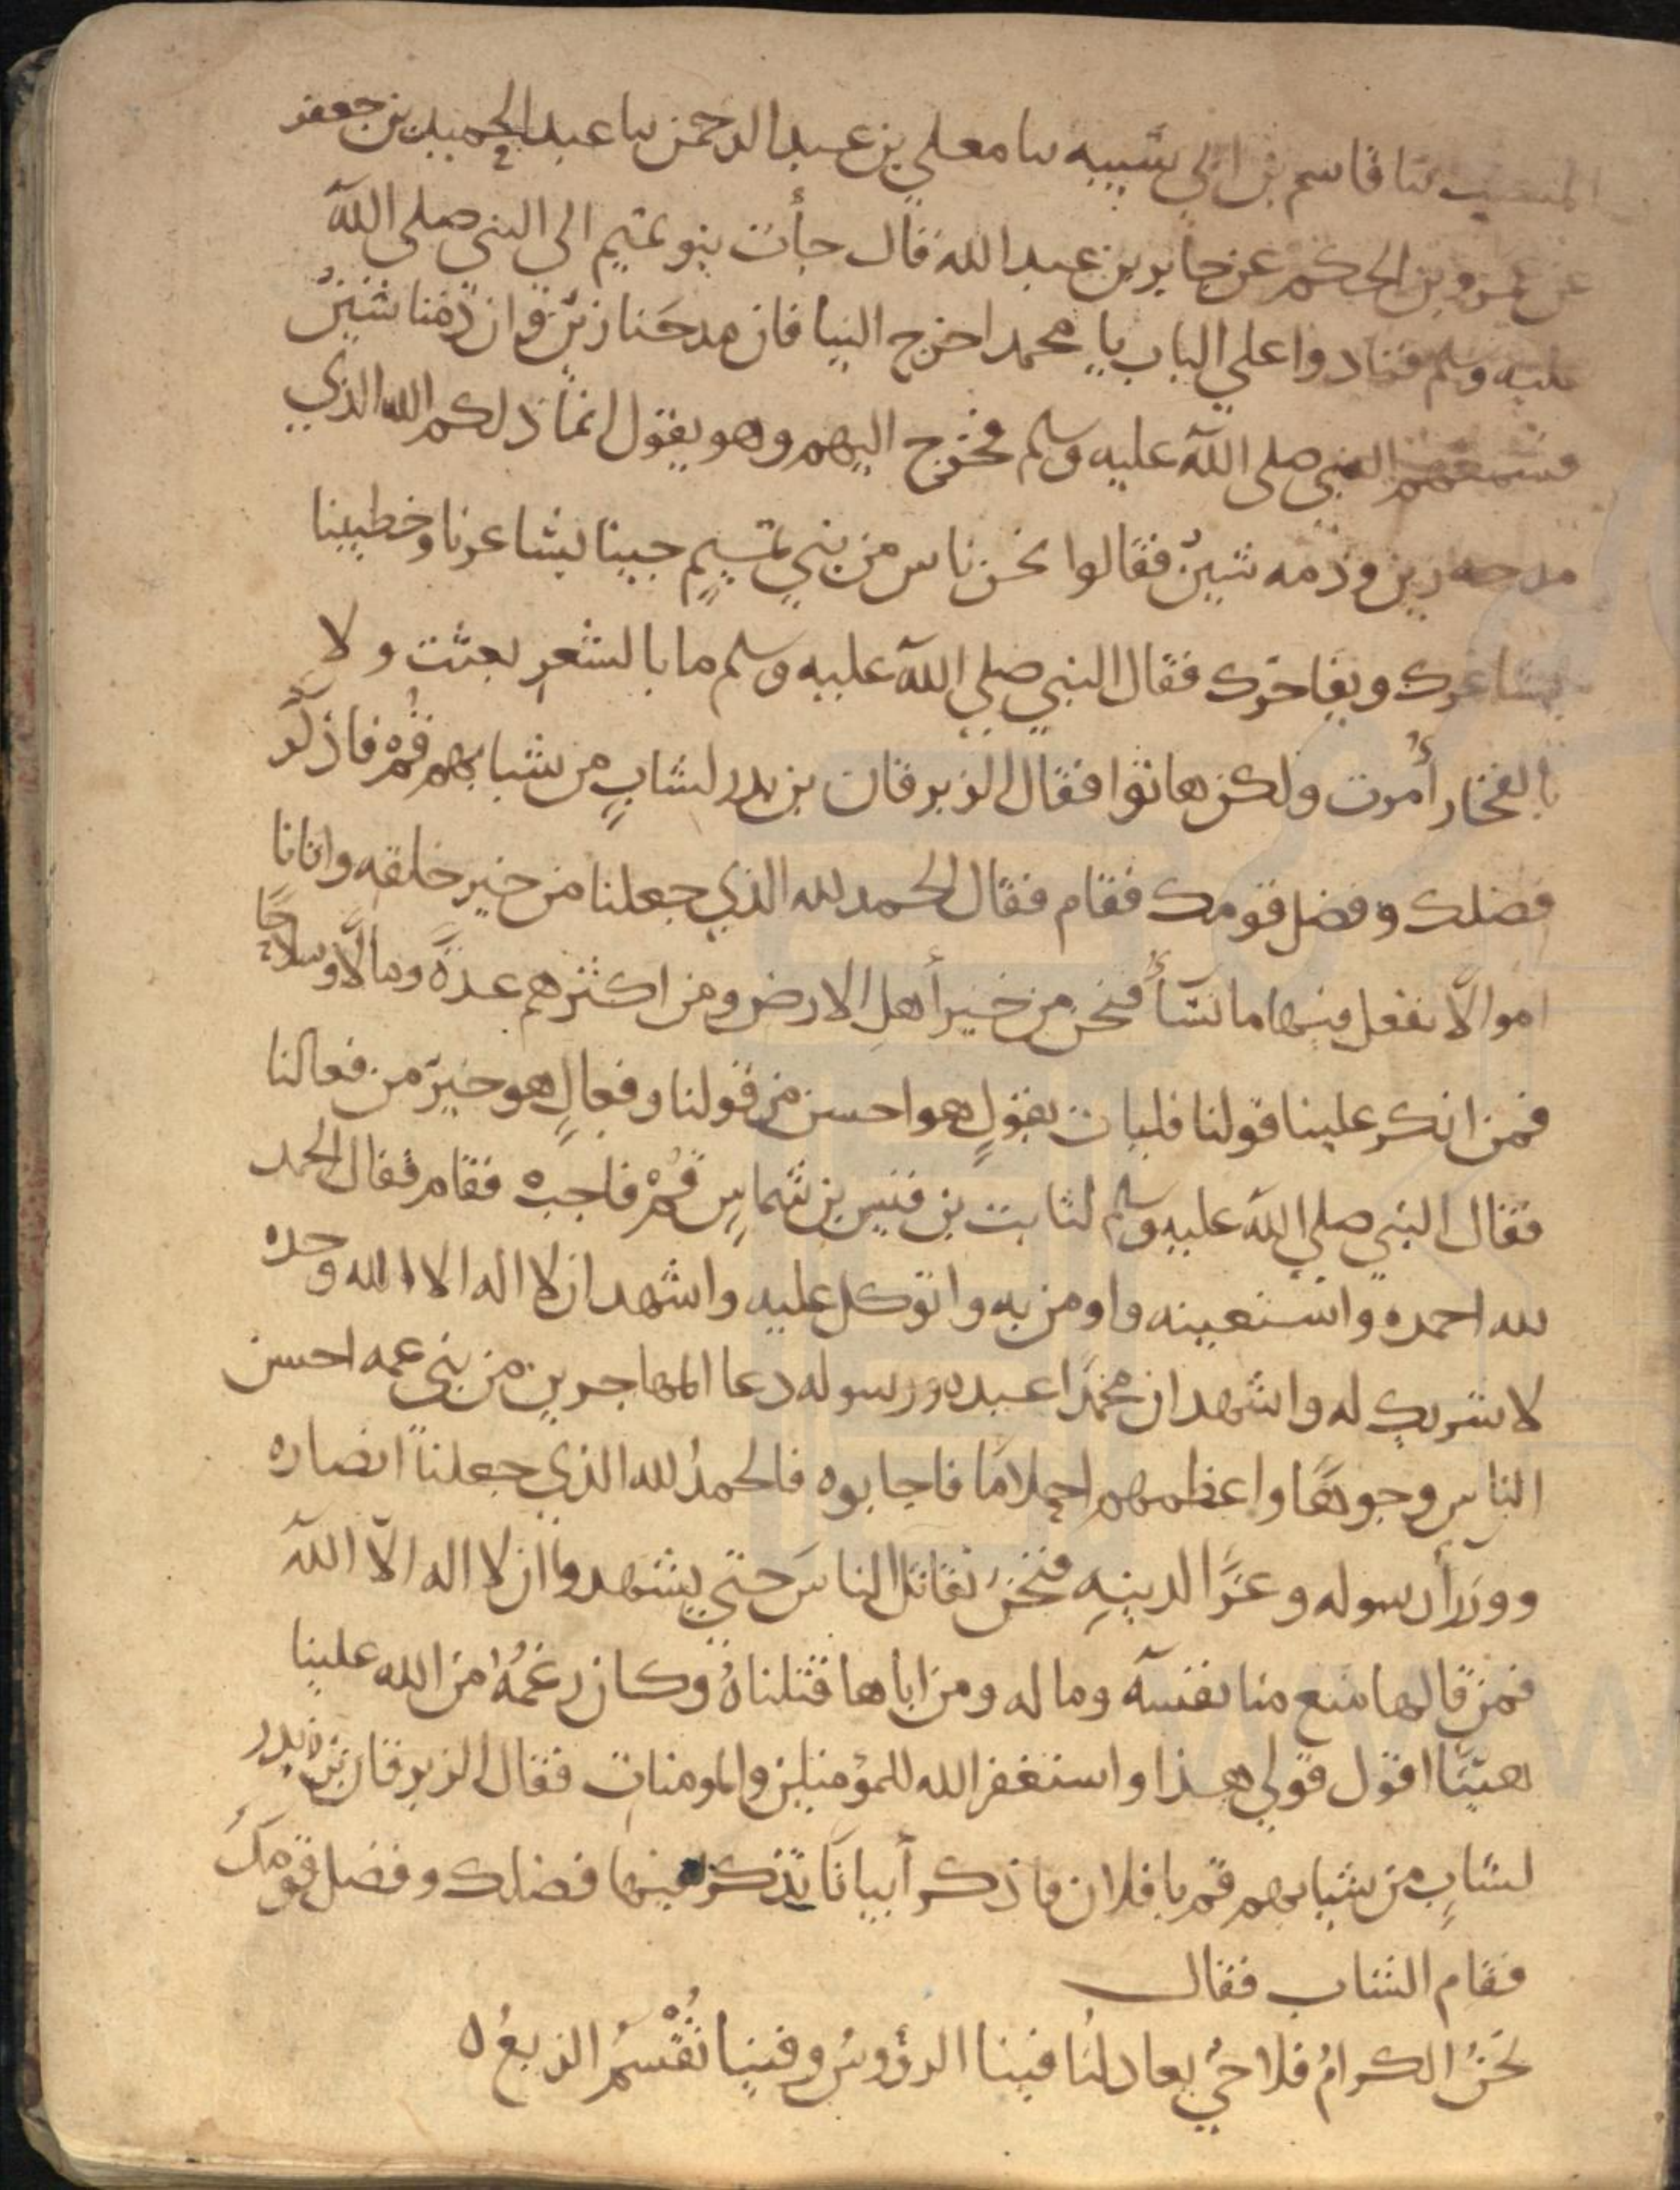 ثنا قاسم بن ابي شيبه ثنا معلي بن عبد الرحمن ثنا عبد الحميد بن جعفر
عن عمرو بن الحكم عن جابر بن عبد الله قال جأت بنو تميم الي النبي صلي الله
عليه وسلم فنادوا علي الباب يا محمد اخرج الينا فان مدحنا زين وان ذمنا شين
فسمعهم النبي صلي الله عليه وسلم فخرج اليهم وهو يقول انما ذلكم الله الذي
مدحه زين وذمه شين فقالوا نحن ناس من بني تميم جينا بشاعرنا وخطيبنا
يشاعرك ويفاخرك فقال النبي صلي الله عليه وسلم ما بالشعر بعثت ولا
بالفخار أمرت ولكن هاتوا فقال الزبرقان بن بدر لشاب من شبابهم قم فاذكر
فضلك وفضل قومك فقام فقال الحمد لله الذي جعلنا من خير خلقه واتانا
اموالًا نفعل فيها ما نشأ فنحن من خير أهل الارض ومن اكثرهم عدة ومالًا وسلاحًا
فمن انكر علينا قولنا فليات بقولٍ هو احسن من قولنا وفعالٍ هو خير من فعالنا
فقال النبي صلي الله عليه وسلم لثابت بن قيس بن شماس قم فاجبه فقام فقال الحمد
لله احمده واستعينه واومن به واتوكل عليه واشهد ان لا اله الا الله وحده
لا شريك له واشهد ان محمدًا عبده ورسوله دعا المهاجرين من بني عمه احسن
الناس وجوهًا واعظمهم احلامًا فاجابوه فالحمد لله الذي جعلنا انصاره
ووزرأ رسوله وعزًا لدينه فنحن نقاتل الناس حتي يشهدوا ان لا اله الا الله
فمن قالها منع منا نفسه وماله ومن اباها قتلناه وكان رغمه من الله علينا
هينًا اقول قولي هذا واستغفر الله للمؤمنين والمومنات فقال الزبرقان بن بدر
لشابٍ من شبابهم قم يا فلان فاذكر أبياتًا تذكر فيها فضلك وفضل قومك
فقام الشاب فقال
نحن الكرام فلا حي يعادلنا فينا الرؤوس وفينا تُقْسَمُ الربعُ ه